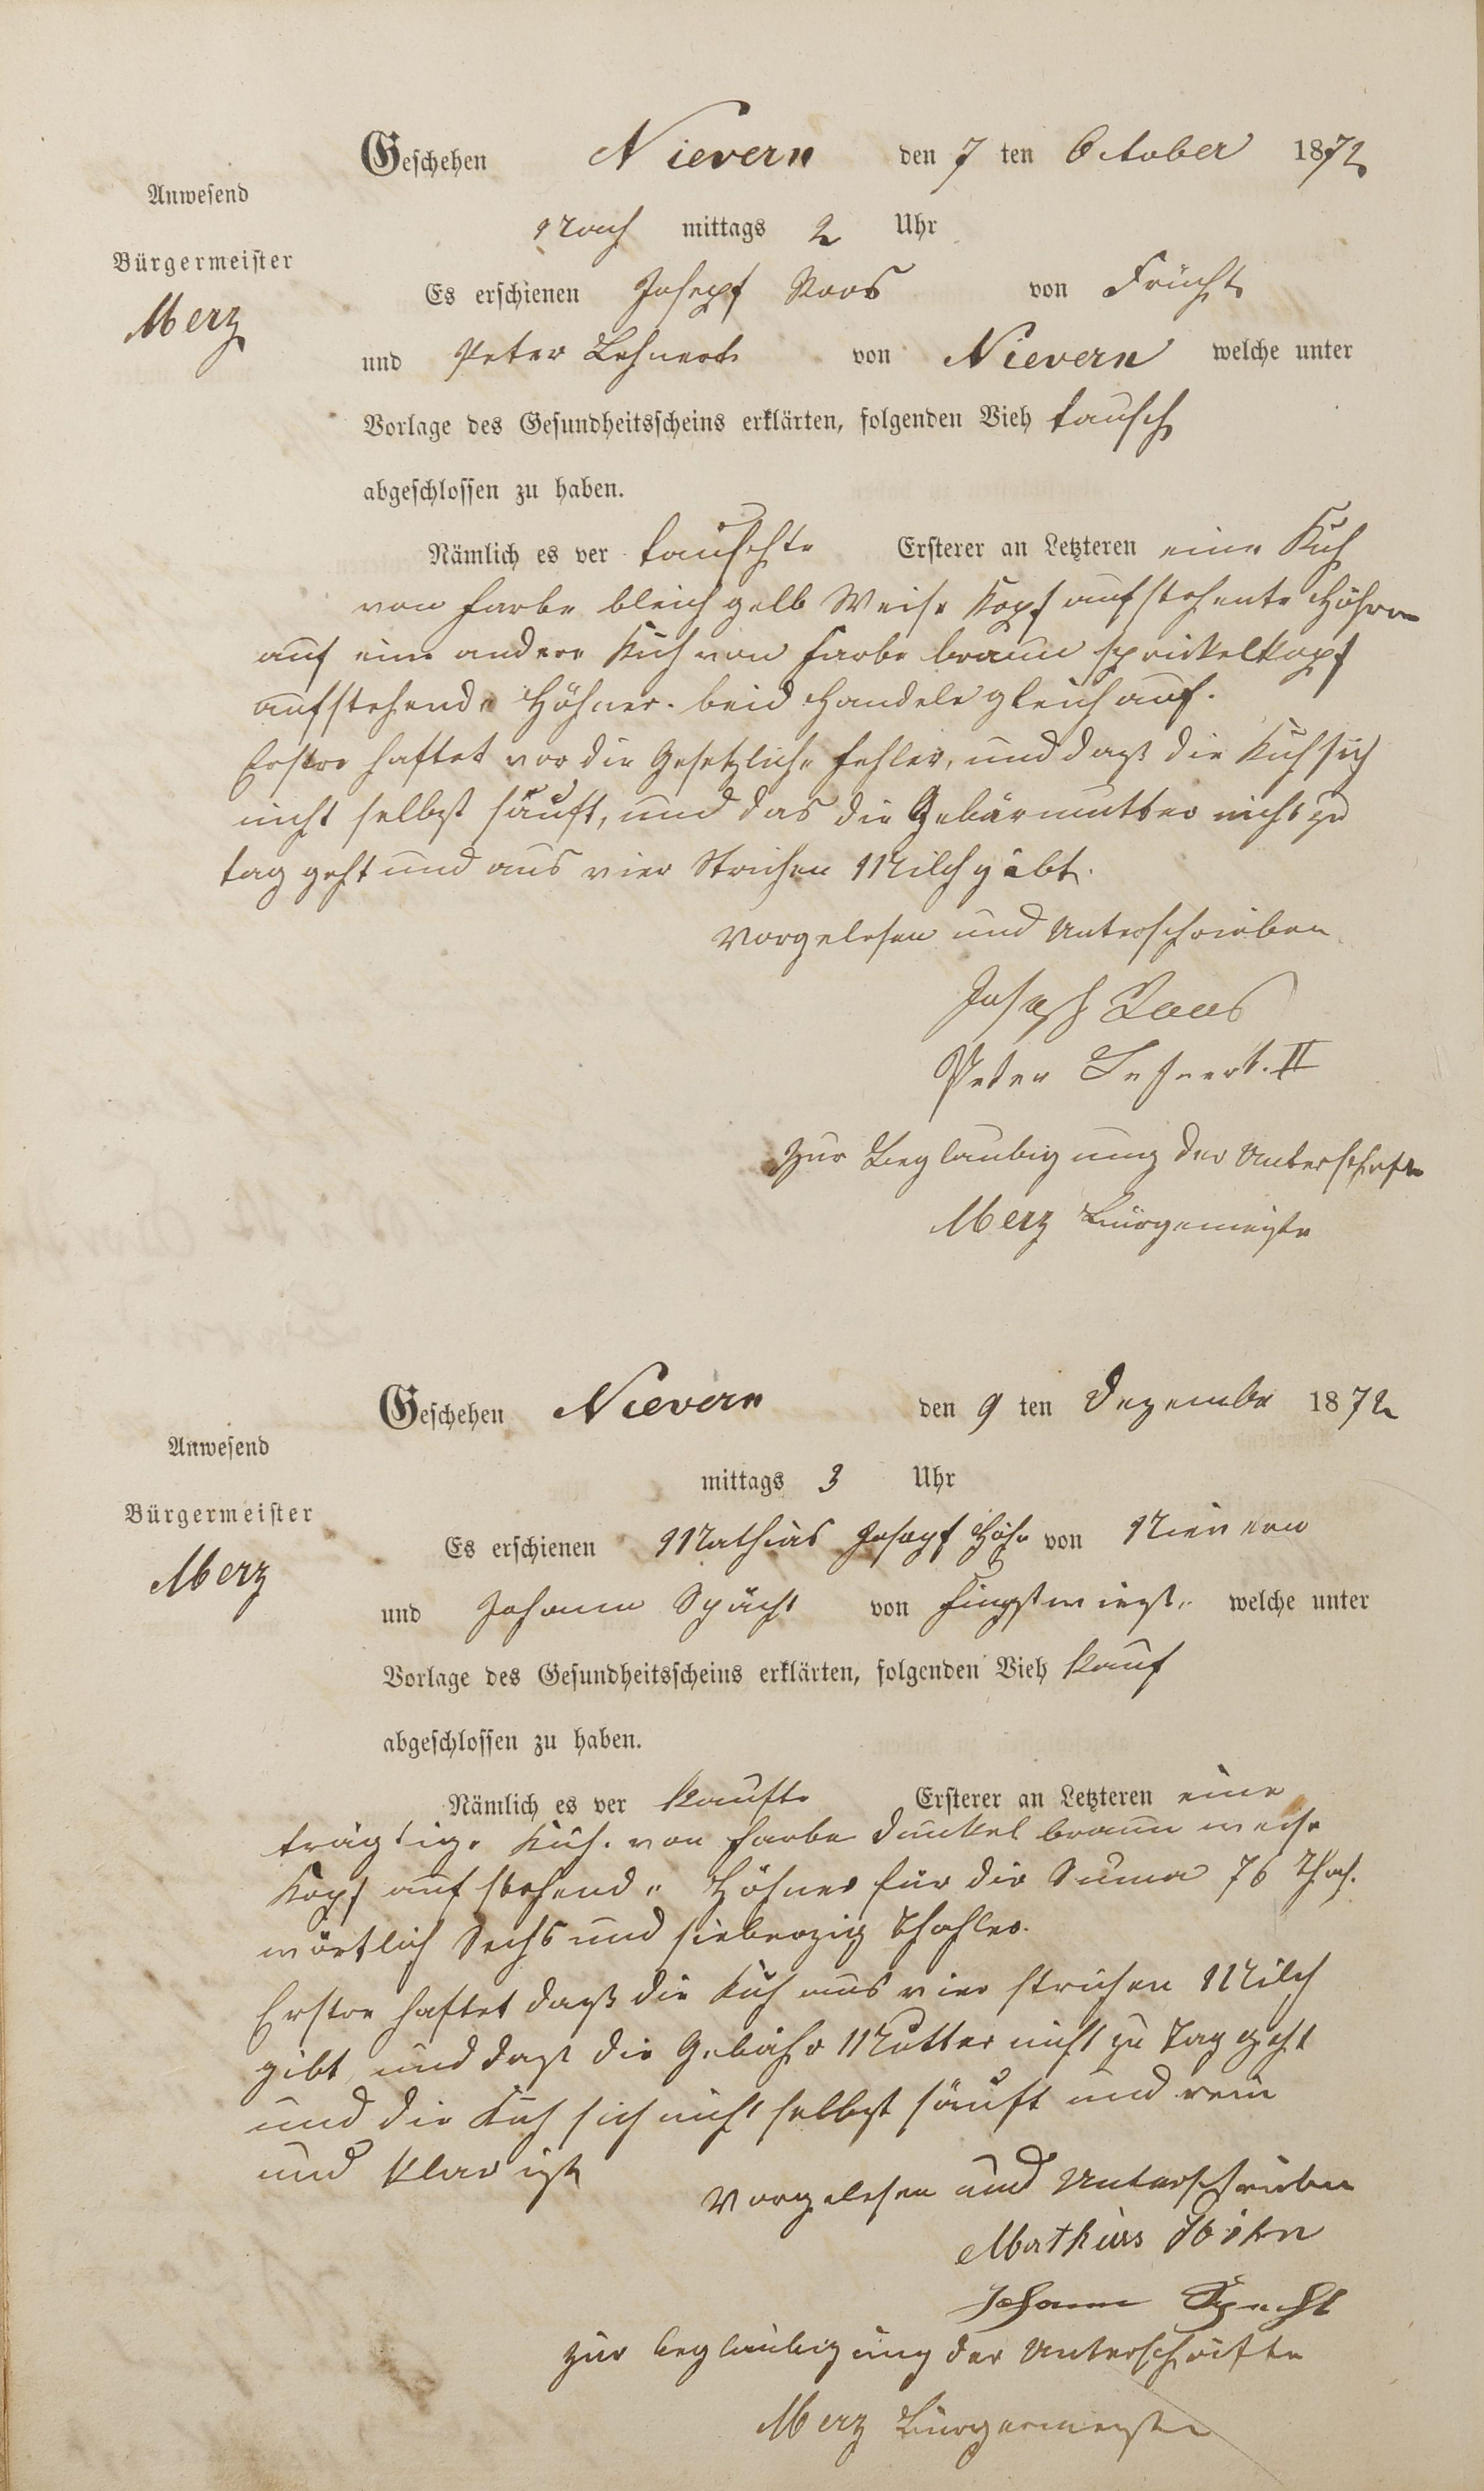 Geschehen Nievern den 7 ten October 1872
Anwesend
Nach mittags 2 Uhr
Bürgermeister
Es erschienen Josepf Roos von Frücht
Merz
und Peter Lehnert von Nievern welche unter
Vorlage des Gesundheitsscheins erklärten, folgenden Vieh tausch
abgeschlossen zu haben.
Nämlich es ver tauschte Ersterer an Letzteren eine Kuh
von Farbe bleich gelb Weise Kopf aufstehente Höhrn
auf eine andere Kuh von Farbe braun sprickelkopf
aufstehende Höhner. beid Handele gleich auf.
Erstre haftet vor die Gesetzliche Fehler, und daß die Kuh sich
nicht selbst säuft, und das die Gebärmutter nicht zu
tag geht und aus vier Strichen Milch gibt.
Vorgelesen und Unterschrieben
Joseph Roos
Peter Lehnert. II
Zur Beglaubigung der Unterschrift
Merz Bürgemeister
Geschehen Nievern den 9 ten Dezember 1872
Anwesend
mittags 3 Uhr
Bürgermeister
Es erschienen Mathias Josepf Höhn von Nievern
Merz
und Johann Spächt von welche unter
Vorlage des Gesundheitsscheins erklärten, folgenden Vieh Kauf
abgeschlossen zu haben.
Nämlich es ver kaufte Ersterer an Letzteren eine
trägtige Kuh. von Farbe dunkel braun weise
Kopf aufstehende Höhner für die Suma 76 Thah.
wörtlich Sechs und siebenzig Thahler.
Erstre haftet daß die Kuh aus vier strichen Milch
gibt und daß die Gebähr Mutter nicht zu Tag geht
und die Kuh sich nicht selbst säuft und rein
und klar ist
Vorgelesen und Unterschrieben
Mathias Höhn
Johann Specht
zur beglaubigung der Unterschrifte
Merz Bürgermeister